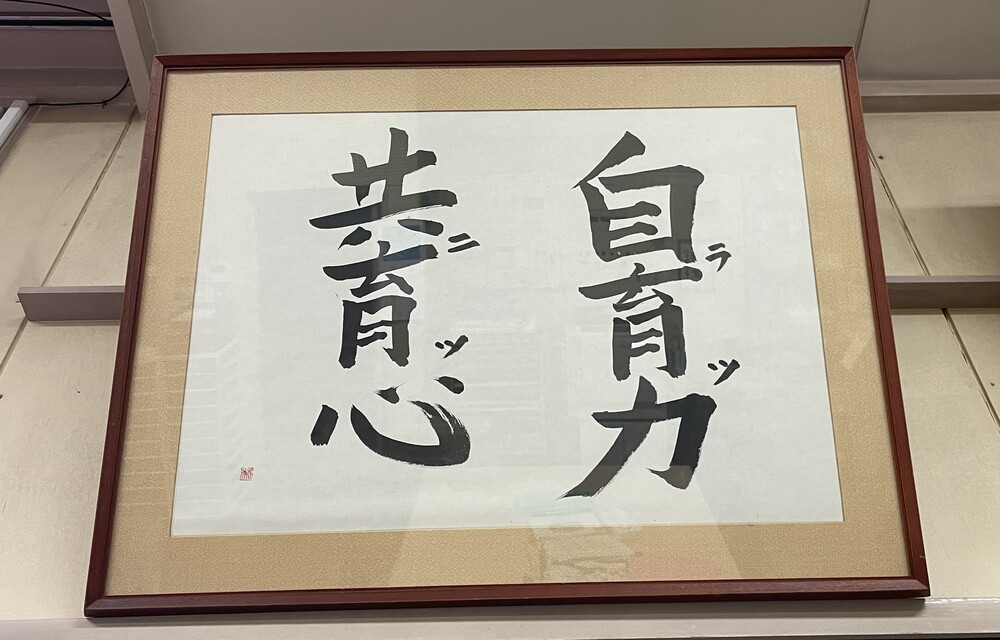 自ラ育ツ力
共ニ育ツ心